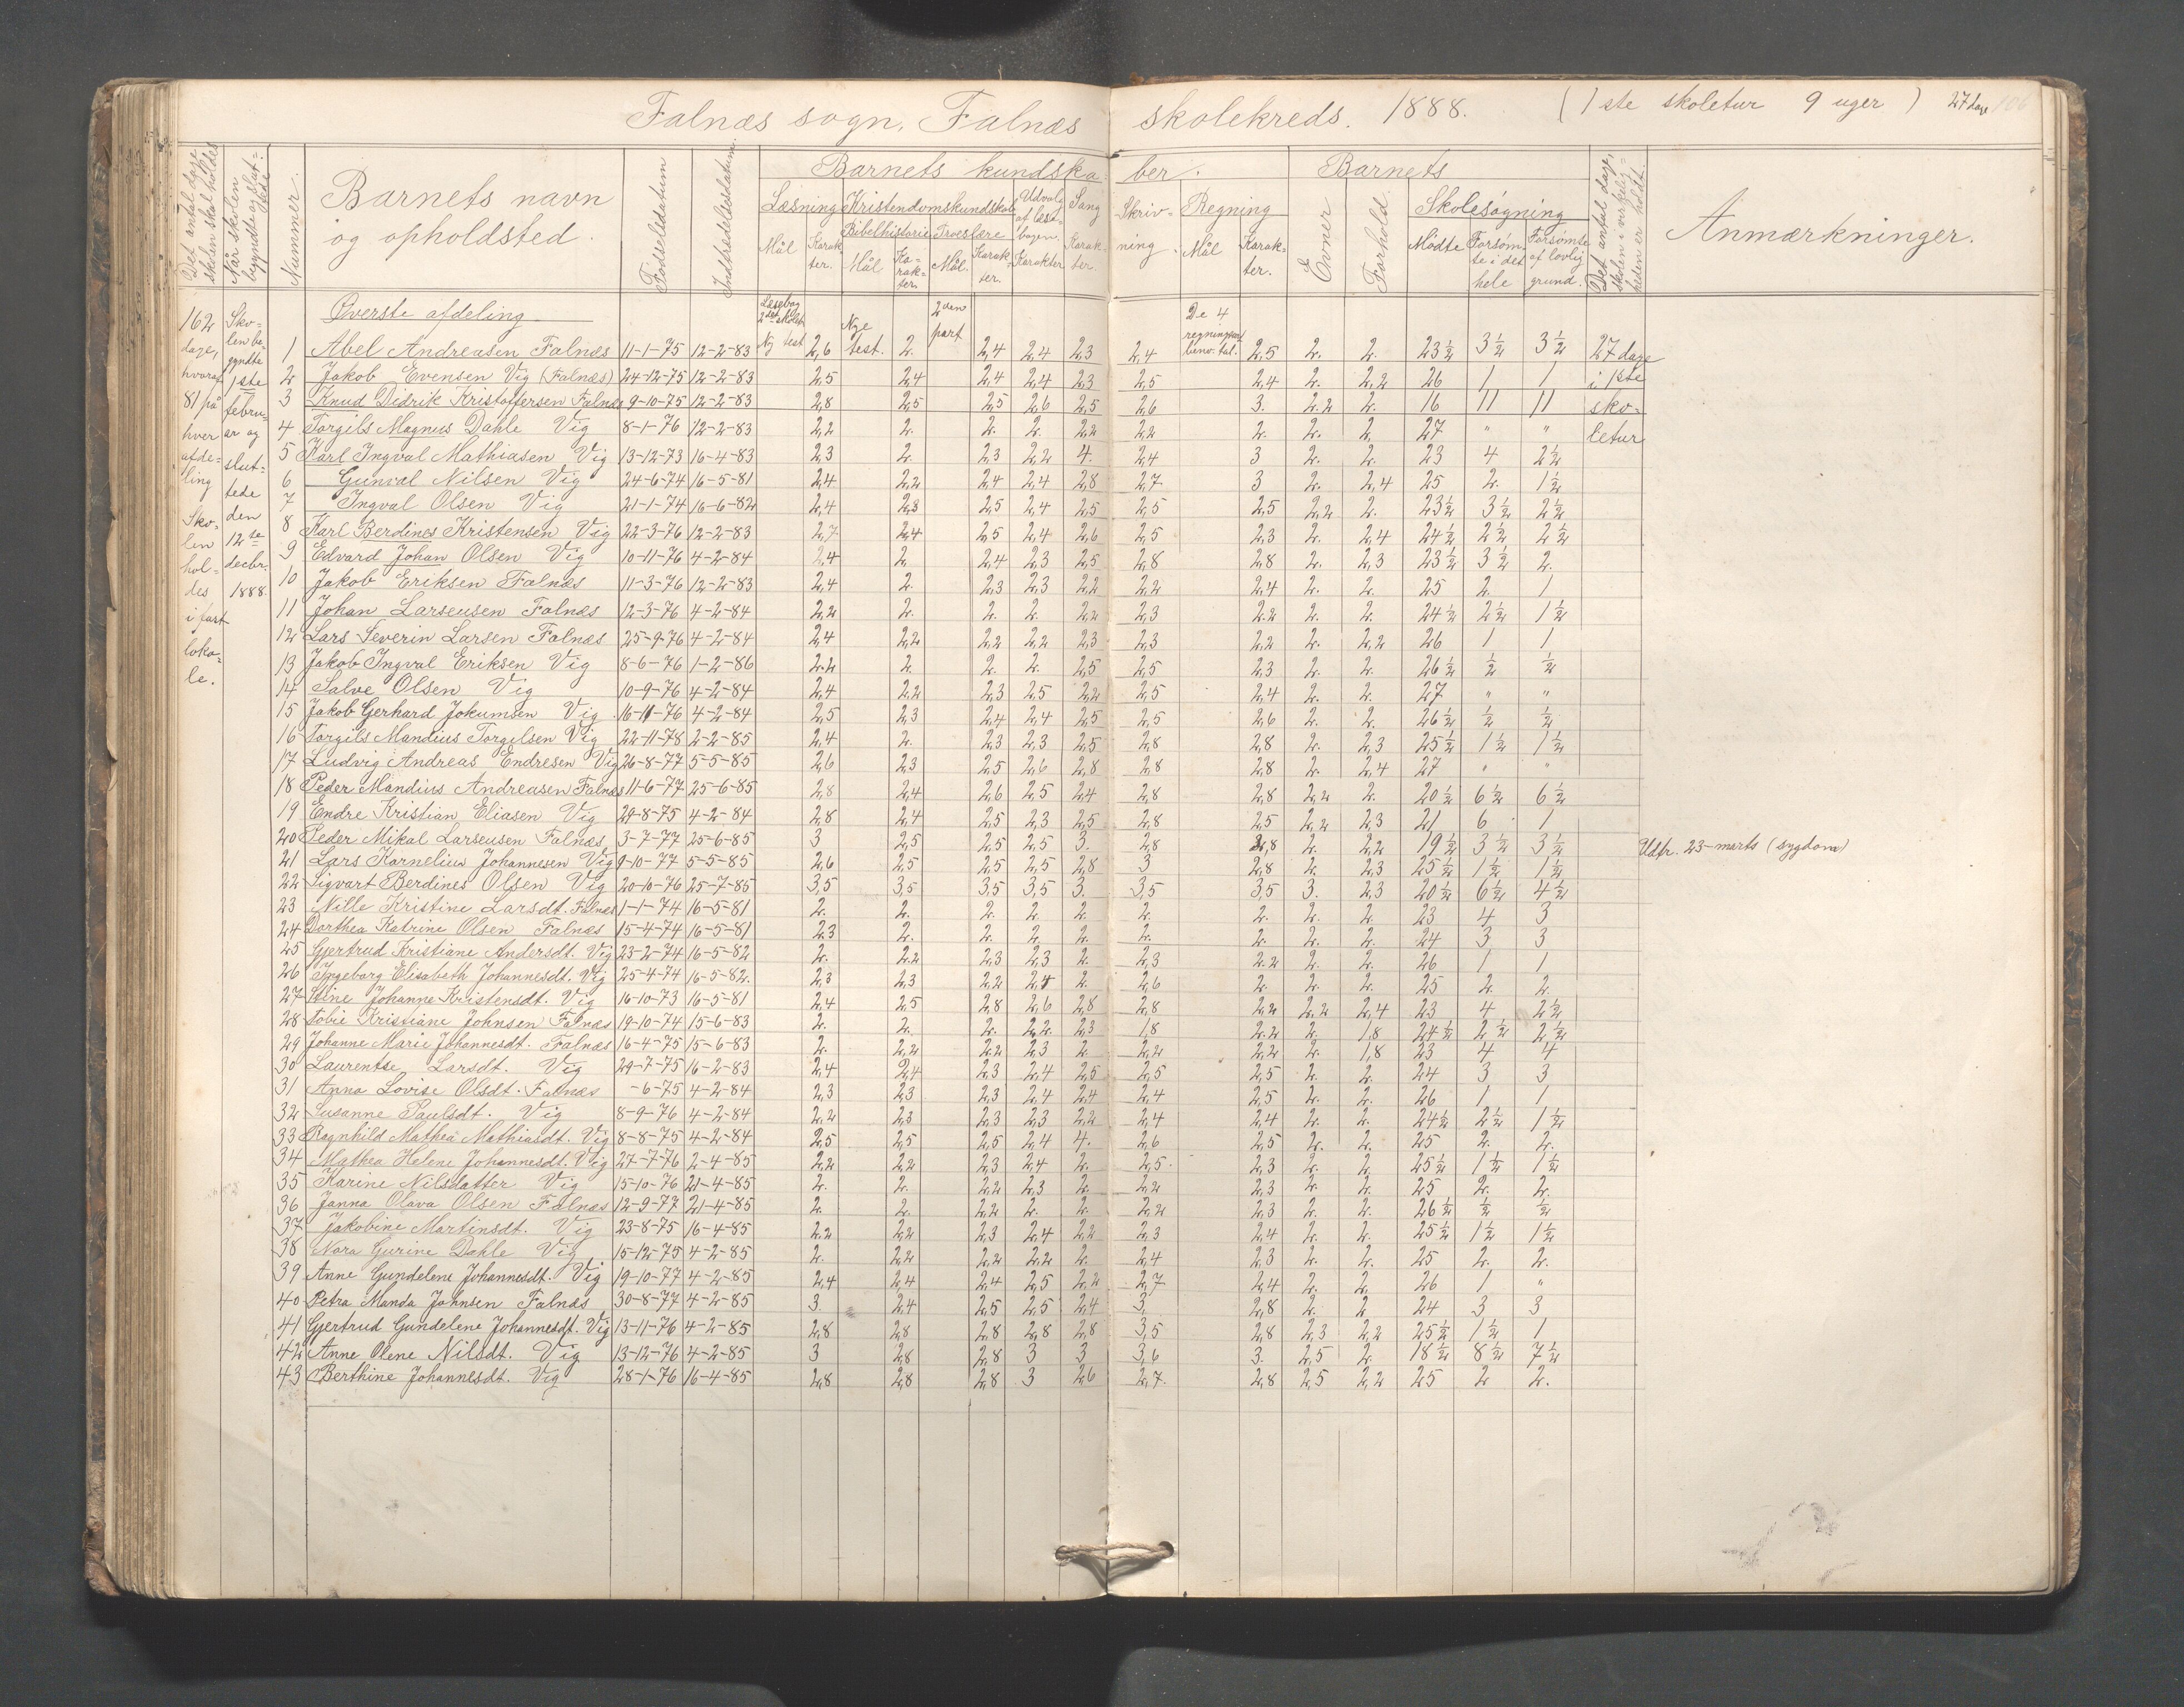 Falnæs sogn, Falnæs skolekreds. 1888. (1ste skoletur 9 uger) 27 dage 106
Det antal dage skolen skal holdes
Når skolen begyndte og sluttede
Nummer.
Barnets navn og opholdsted.
Fødselsdatum
Indtrædelsesdatum.
Barnets kundskaber.
Læsning
Mål
Karakter.
Kristendomskundskab
Bibelhistorie
Mål
Karakter.
Troeslære
Mål.
Karakter.
Udvalg af læsebogen.
Karakter
Sang
Karakter.
Skrivning.
Regning
Mål
Karakter.
Barnets
Evner
Forhold.
Skolesøgning
Mødte
Forsømte i det hele
Forsømte af lovlig grund.
Det antal dage, skolen i virkeligheden er holdt.
Anmærkninger.
162 dage, hvoraf 81 på hver afdeling Skolen holdes i fast lokale.
Skolen begyndte 1ste februar og sluttede den 12te decbr. 1888.
Øverste afdeling
Læsebog 2det skoletr Ny test
Nye test.
2den part
De 4 regningsart benv. tal.
27 dage i 1ste skoletur
1 Abel Andreasen Falnæs 11-1-75 12-2-83 2,6 2. 2,4 2,4 2,3 2,4 2,5 2. 2. 23½ 3½ 3½
2 Jakob Evensen Vig (Falnæs) 24-12-75 12-2-83 2,5 2,4 2,4 2,4 2,3 2,5 2,4 2. 2,2 26 1 1
3 Knud Didrik Kristoffersen Falnæs 9-10-75 12-2-83 2,8 2,5 2,5 2,6 2,5 2,6 3. 2,2 2. 16 11 11
4 Torgils Magnus Dahle Vig 8-1-76 12-2-83 2,2 2. 2. 2. 2,2 2,2 2. 2. 2. 27 " "
5 Karl Ingval Mathiasen Vig 13-12-73 16-4-83 2,3 2. 2,3 2,2 4. 2,4 3 2. 2. 23 4 2½
6 Gunval Nilsen Vig 24-6-74 16-5-81 2,4 2,2 2,4 2,4 2,8 2,7 3 2. 2,4 25 2. 1½
7 Ingval Olsen Vig 21-1-74 16-6-82 2,4 2,3 2,5 2,4 2,5 2,5 2,5 2,2 2. 23½ 3½ 2½
8 Karl Berdines Kristensen Vig 22-3-76 12-2-83 2,7 2,4 2,5 2,4 2,6 2,5 2,3 2. 2,4 24½ 2½ 2½
9 Edvard Johan Olsen Vig 10-11-76 4-2-84 2,4 2. 2,4 2,3 2,5 2,8 2,8 2. 2,3 23½ 3½ 2.
10 Jakob Eriksen Falnæs 11-3-76 12-2-83 2,4 2. 2,3 2,3 2,2 2,2 2,4 2. 2. 25 2. 1
11 Johan Larseusen Falnæs 12-3-76 4-2-84 2,2 2. 2. 2. 2,2 2,3 2,2 2. 2. 24½ 2½ 1½
12 Lars Severin Larsen Falnæs 25-9-76 4-2-84 2,4 2,2 2,2 2,2 2,3 2,3 2,2 2. 2,2 26 1 1
13 Jakob Ingval Eriksen Vig 8-6-76 1-2-86 2,2 2. 2. 2. 2,5 2,5 2,3 2. 2. 26½ ½ ½
14 Salve Olsen Vig 10-9-76 4-2-84 2,4 2,2 2,3 2,5 2,2 2,5 2,4 2. 2. 27 " "
15 Jakob Gerhard Jokumsen Vig 16-11-76 4-2-84 2,5 2,3 2,4 2,4 2,5 2,5 2,6 2. 2. 26½ ½ ½
16 Torgils Mandius Torgilsen Vig 22-11-78 2-2-85 2,4 2. 2,3 2,3 2,5 2,8 2,8 2. 2,3 25½ 1½ 1½
17 Ludvig Andreas Endresen Vig 26-8-77 5-5-85 2,6 2,3 2,5 2,6 2,8 2,8 2,8 2. 2,4 27 " "
18 Peder Mandius Andreasen Falnæs 11-6-77 25-6-85 2,8 2,4 2,6 2,5 2,4 2,8 2,8 2,2 2. 20½ 6½ 6½
19 Endre Kristian Eliasen Vig 29-8-75 4-2-84 2,8 2,4 2,5 2,3 2,5 2,8 2,5 2,2 2,3 21 6 1
20 Peder Mikal Larseusen Falnæs 3-7-77 25-6-85 3 2,5 2,5 2,5 3. 2,8 2,8 2. 2,2 19½ 3½ 3½ Udfr. 23-marts (sygdom)
21 Lars Kornelius Johannesen Vig 9-10-77 5-5-85 2,6 2,5 2,5 2,5 2,8 3 2,8 2. 2,3 25½ 1½ 1½
22 Sigvart Berdines Olsen Vig 20-10-76 25-7-85 3,5 3,5 3,5 3,5 3. 3,5 3,5 3. 2,3 20½ 6½ 4½
23 Nille Kristine Larsdt. Falnæs 1-1-74 16-5-81 2. 2. 2. 2. 2. 2. 2. 2. 2. 23 4 3
24 Dorthea Katrine Olsen Falnæs 15-4-74 16-5-81 2,3 2. 2. 2. 2. 2. 2. 2. 2. 24 3 3
25 Gjertrud Kristiane Andersdt. Vig 23-2-74 16-5-82 2. 2,2 2,3 2,3 2. 2,3 2,2 2. 2. 26 1 1
26 Ingeborg Elisabeth Johannesdt. Vig 25-4-74 16-5-82. 2,3 2,3 2,2 2,4 2. 2,6 2. 2. 2. 25 2. 2.
27 Stine Johanne Kristensdt. Vig 16-10-73 16-5-81 2,4 2,5 2,8 2,6 2,8 2,8 2,2 2,2 2,4 23 4 2½
28 Tobie Kristiane Johnsen Falnæs 19-10-74 15-6-83 2. 2. 2. 2,2 2,3 1,8 2,2 2. 1,8 24½ 2½ 2½
29 Johanne Marie Johannesdt. Falnæs 16-4-75 15-6-83 2. 2,2 2,2 2,3 2. 2,2 2,2 2. 1,8 23 4 4
30 Laurentse Larsdt. Vig 29-7-75 16-2-83 2,4 2,4 2,3 2,4 2,5 2,5 2,5 2. 2. 24 3 3
31 Anna Lovise Olsdt. Falnæs -6-75 4-2-84 2,3 2,3 2,3 2,4 2,4 2,4 2,5 2. 2. 26 1 1
32 Susanne Paulsdt. Vig 8-9-76 4-2-84 2,2 2,3 2,3 2,3 2,2 2,4 2,4 2. 2. 24½ 2½ 1½
33 Ragnhild Mathea Mathiasdt. Vig 8-8-75 4-2-84 2,5 2,5 2,5 2,4 4. 2,6 2,5 2. 2. 25 2. 2.
34 Mathea Helene Johannesdt. Vig 27-7-76 2-4-85 2,2 2,2 2,3 2,4 2. 2,5. 2,3 2. 2. 25½ 1½ 1½
35 Karine Nilsdatter Vig 15-10-76 21-4-85 2. 2. 2,2 2,3 2. 2,2 2,3 2. 2. 25 2. 2.
36 Janna Olava Olsen Falnæs 12-9-77 21-4-85 2. 2. 2,2 2. 2. 2,2 2,3 2. 2. 26½ ½ ½
37 Jakobine Martinsdt. Vig 23-8-75 16-4-85 2,2 2,2 2,3 2,4 2,2 2,3 2,4 2. 2. 25½ 1½ 1½
38 Nora Gurine Dahle Vig 15-12-75 4-2-85 2. 2,2 2,2 2,2 2. 2,4 2,3 2. 2. 25 2. 2.
39 Anne Gundelene Johannesdt. Vig 19-10-77 4-2-85 2,4 2,4 2,4 2,5 2,2 2,7 2,4 2. 2. 26 1 "
40 Petra Manda Johnsen Falnæs 30-8-77 4-2-85 3. 2,4 2,5 2,5 2,4 3. 2,8 2. 2. 24 3 3
41 Gjertrud Gundelene Johannesdt. Vig 13-11-76 4-2-85 2,8 2,8 2,8 2,8 2,8 3,5 2,8 2,3 2,2 25½ 1½ 1
42 Anne Olene Nilsdt. Vig 13-12-76 4-2-85 3 2,8 2,8 3 3 3,6 3. 2,5 2. 18½ 8½ 7½
43 Berthine Johannesdt. Vig 28-1-76 16-4-85 2,8 2,8 2,8 3 2,6 2,7. 2,8 2,5 2,2 25 2 2.